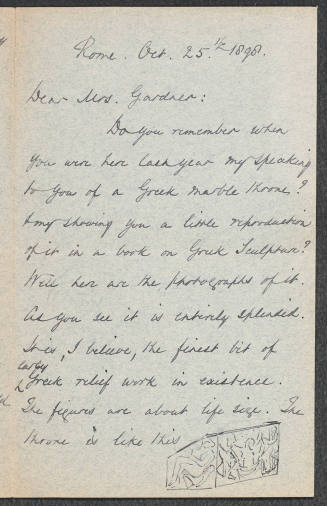 Rome. Oct. 25.th 1898.
Dear Mrs. Gardner:
Do you remember when
you were here last year my speaking
to you of a Greek marble throne?
& my showing you a little reproduction
of it in a book on Greek Sculpture?
Well here are the photographs of it.
As you see it is entirely splendid.
It is, I believe, the finest bit of
early
Greek relief work in existence.
The figures are about life size. The
throne is like this